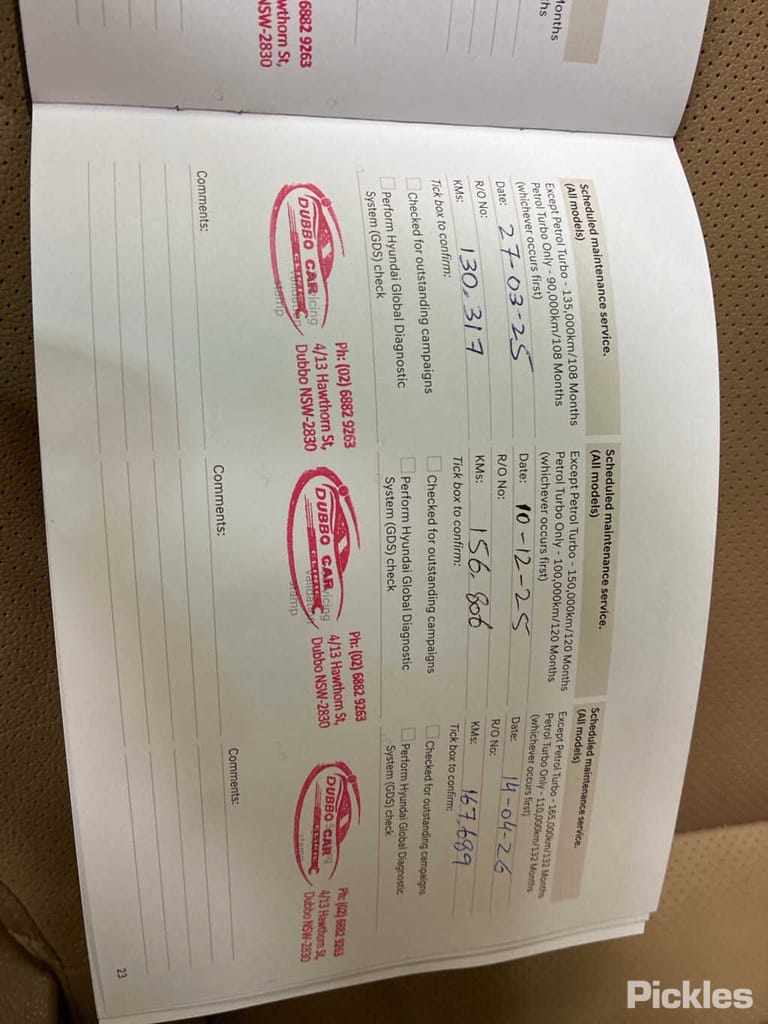 Months
ths
6882 9263
Hawthorn St,
NSW-2830
Scheduled maintenance service.
(All models)
Except Petrol Turbo - 135,000km/108 Months
Petrol Turbo Only - 90,000km/108 Months
(whichever occurs first)
Date: 27-03-25
R/O No:
KMs: 130,317
Tick box to confirm:
Checked for outstanding campaigns
Perform Hyundai Global Diagnostic
System (GDS) check
DUBBO CAR
CLINIC
stamp
Ph: (02) 6882 9263
4/13 Hawthorn St,
Dubbo NSW-2830
Comments:
Scheduled maintenance service.
(All models)
Except Petrol Turbo - 150,000km/120 Months
Petrol Turbo Only - 100,000km/120 Months
(whichever occurs first)
Date: 10-12-25
R/O No:
KMs: 156,806
Tick box to confirm:
Checked for outstanding campaigns
Perform Hyundai Global Diagnostic
System (GDS) check
DUBBO CAR
CLINIC
stamp
Ph: (02) 6882 9263
4/13 Hawthorn St,
Dubbo NSW-2830
Comments:
Scheduled maintenance service.
(All models)
Except Petrol Turbo - 165,000km/132 Months
Petrol Turbo Only - 110,000km/132 Months
(whichever occurs first)
Date: 14-04-26
R/O No:
KMs: 167,689
Tick box to confirm:
Checked for outstanding campaigns
Perform Hyundai Global Diagnostic
System (GDS) check
DUBBO CAR
CLINIC
stamp
Ph: (02) 6882 9263
4/13 Hawthorn St,
Dubbo NSW-2830
Comments:
23
Pickles